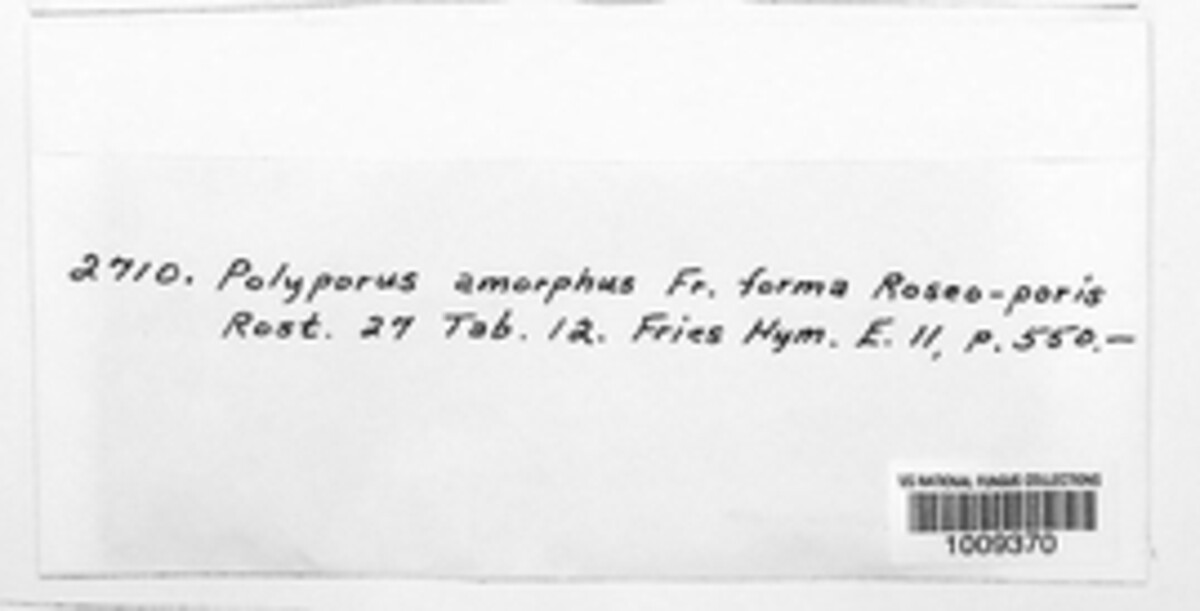 2710. Polyporus amorphus Fr. forma Roseo-poris
Rost. 27 Tab. 12. Fries Hym. E. 11, p. 550.—
US NATIONAL FUNGUS COLLECTIONS
1009370